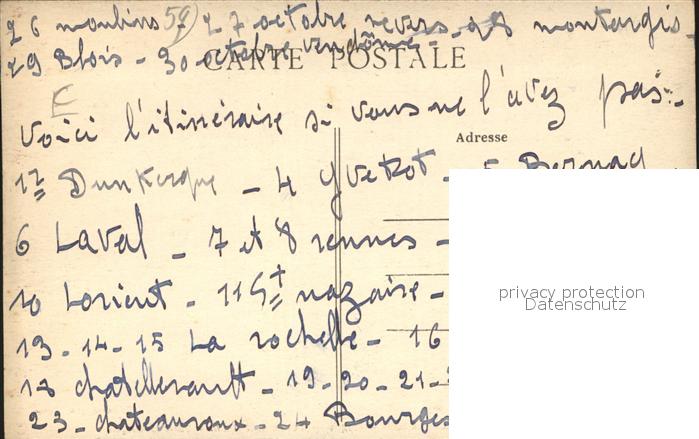 26 moulins 27 octobre nevers - 28 montargis -
29 Blois - 30 octobre vendôme -
CARTE POSTALE
E
Voici l'itinéraire si vous ne l'avez pas -
Adresse
Dunkerque - 4 yvetot - 5 Bernay
6 Laval - 7 et 8 rennes -
10 Lorient - 11 St nazaire -
13 - 14 - 15 La rochelle - 16
18 chatellerault - 19 - 20 - 21 -
23 - chateauroux - 24 Bourges
privacy protection
Datenschutz